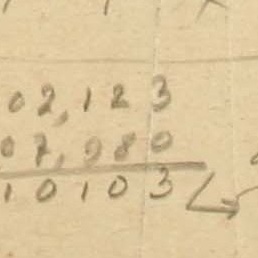 02,123
07,980
10103